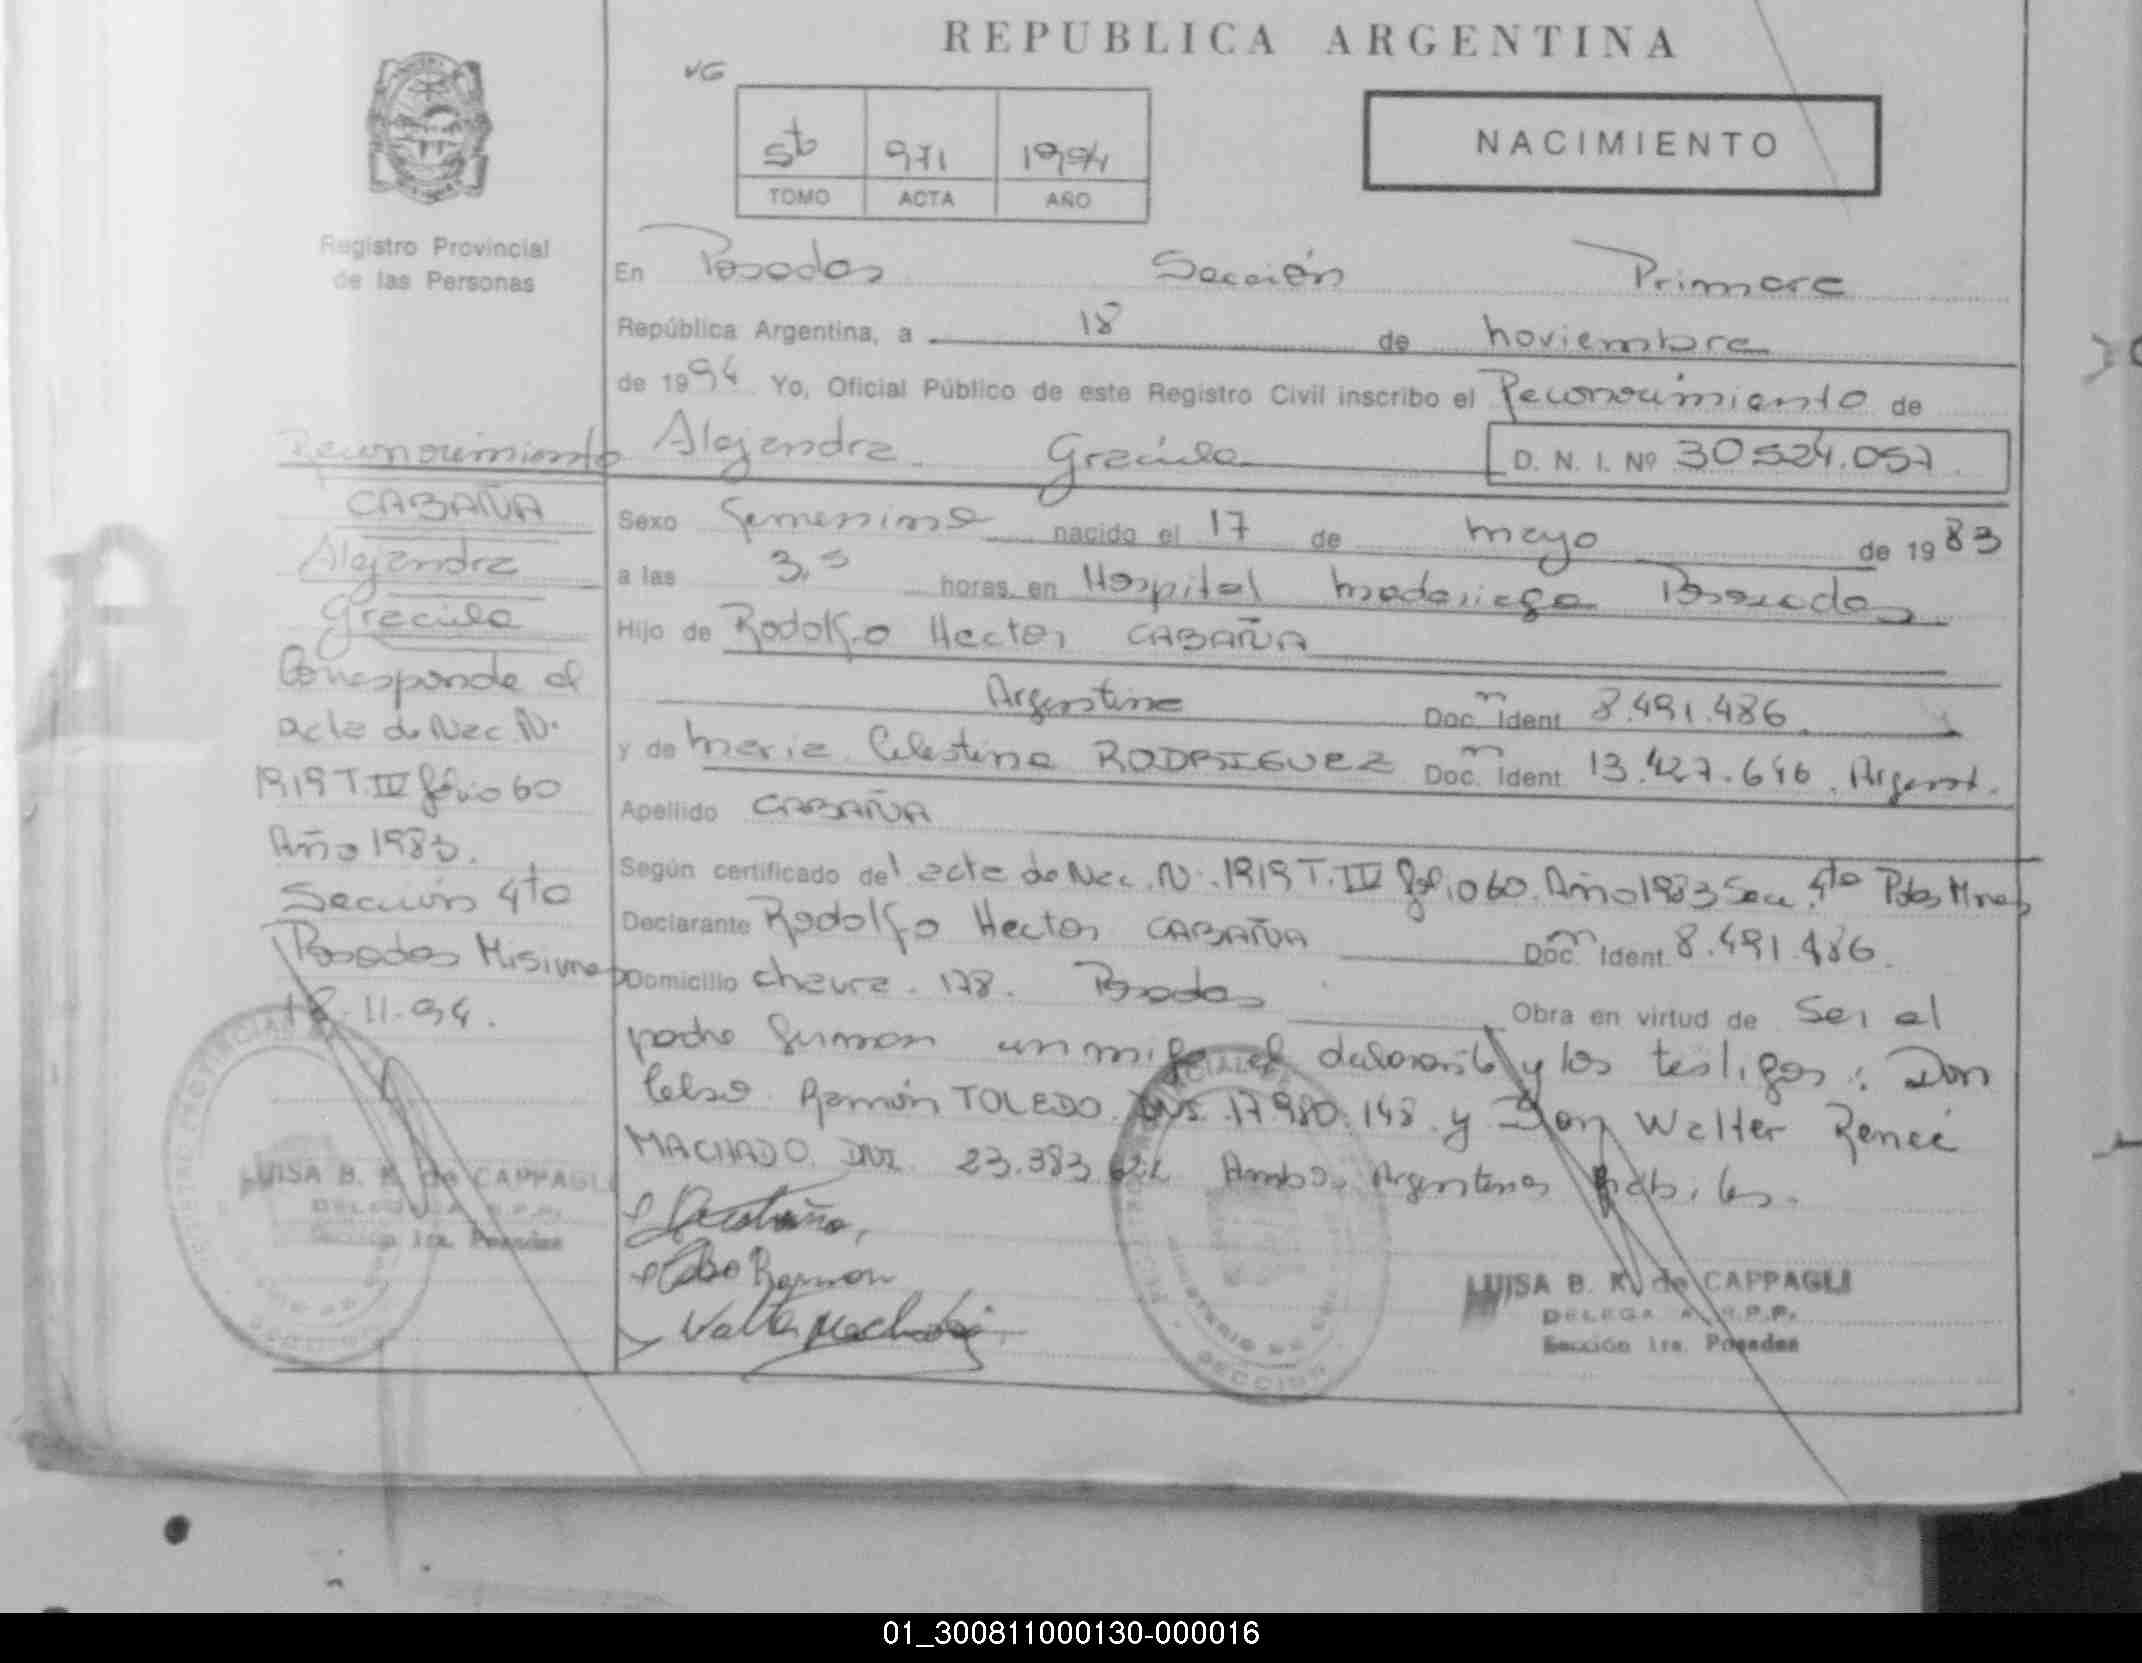 REPUBLICA ARGENTINA
VG
5to 971 1994
TOMO ACTA AÑO
NACIMIENTO
Registro Provincial
de las Personas
En Posadas Sección Primera
República Argentina, a 18 de noviembre
de 1994 Yo, Oficial Público de este Registro Civil inscribo el Reconocimiento de
Alejandra Graciela D. N. I. Nº 30524.057
Sexo femenino nacido el 17 de mayo de 1983
a las 3,5 horas en Hospital Madariaga Posadas
Hijo de Rodolfo Hector CABAÑA
Argentina Doc. Ident 8.491.486
y de Maria Celestina RODRIGUEZ Doc. Ident 13.427.646. Argent.
Apellido CABAÑA
Según certificado del acta de Nac. N. 1919 T. IV folio 60. Año 1983 Sec. 4to Pdas Mnes
Declarante Rodolfo Hector CABAÑA Doc. Ident. 8.491.486.
Domicilio chacra. 178. Posadas Obra en virtud de Ser el
padre firman conmigo el declarante y los testigos: Don
Celso Ramón TOLEDO. DNI. 17.980.148 y Don Walter Reneé
MACHADO. DNI. 23.383. Ambos Argentinos habiles.
Celso Ramon
Walter Machado
LUISA B. K. de CAPPAGLI
DELEGADA R.P.P.
Sección 1ra. Posadas
Reconocimiento
CABAÑA
Alejandra
Graciela
Corresponde al
acta de Nac. N.
1919 T. IV folio 60
Año 1983.
Sección 4to
Posadas Misiones
18.11.94.
LUISA B. K. de CAPPAGLI
DELEGADA R.P.P.
Sección 1ra. Posadas
01_300811000130-000016